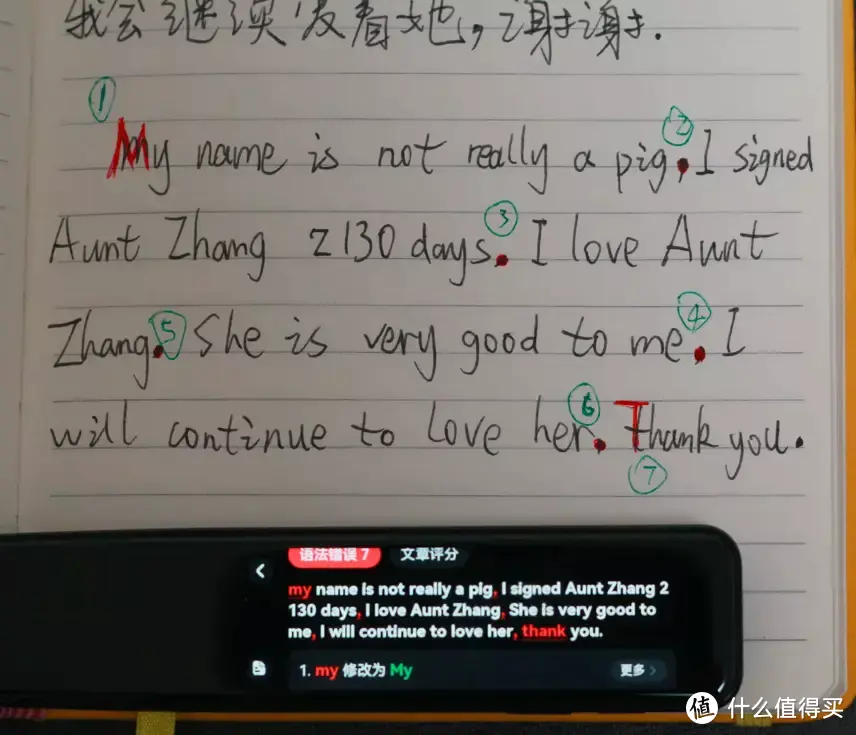 我会继续发着她,谢谢.
①
②
My name is not really a pig. I signed
③
Aunt Zhang 2130 days. I love Aunt
④
Zhang.⑤ She is very good to me. I
⑥
will continue to love her. Thank you.
⑦
语法错误 7 文章评分
my name is not really a pig, I signed Aunt Zhang 2
130 days, I love Aunt Zhang, She is very good to
me, I will continue to love her, thank you.
1. my 修改为 My 更多
值 什么值得买